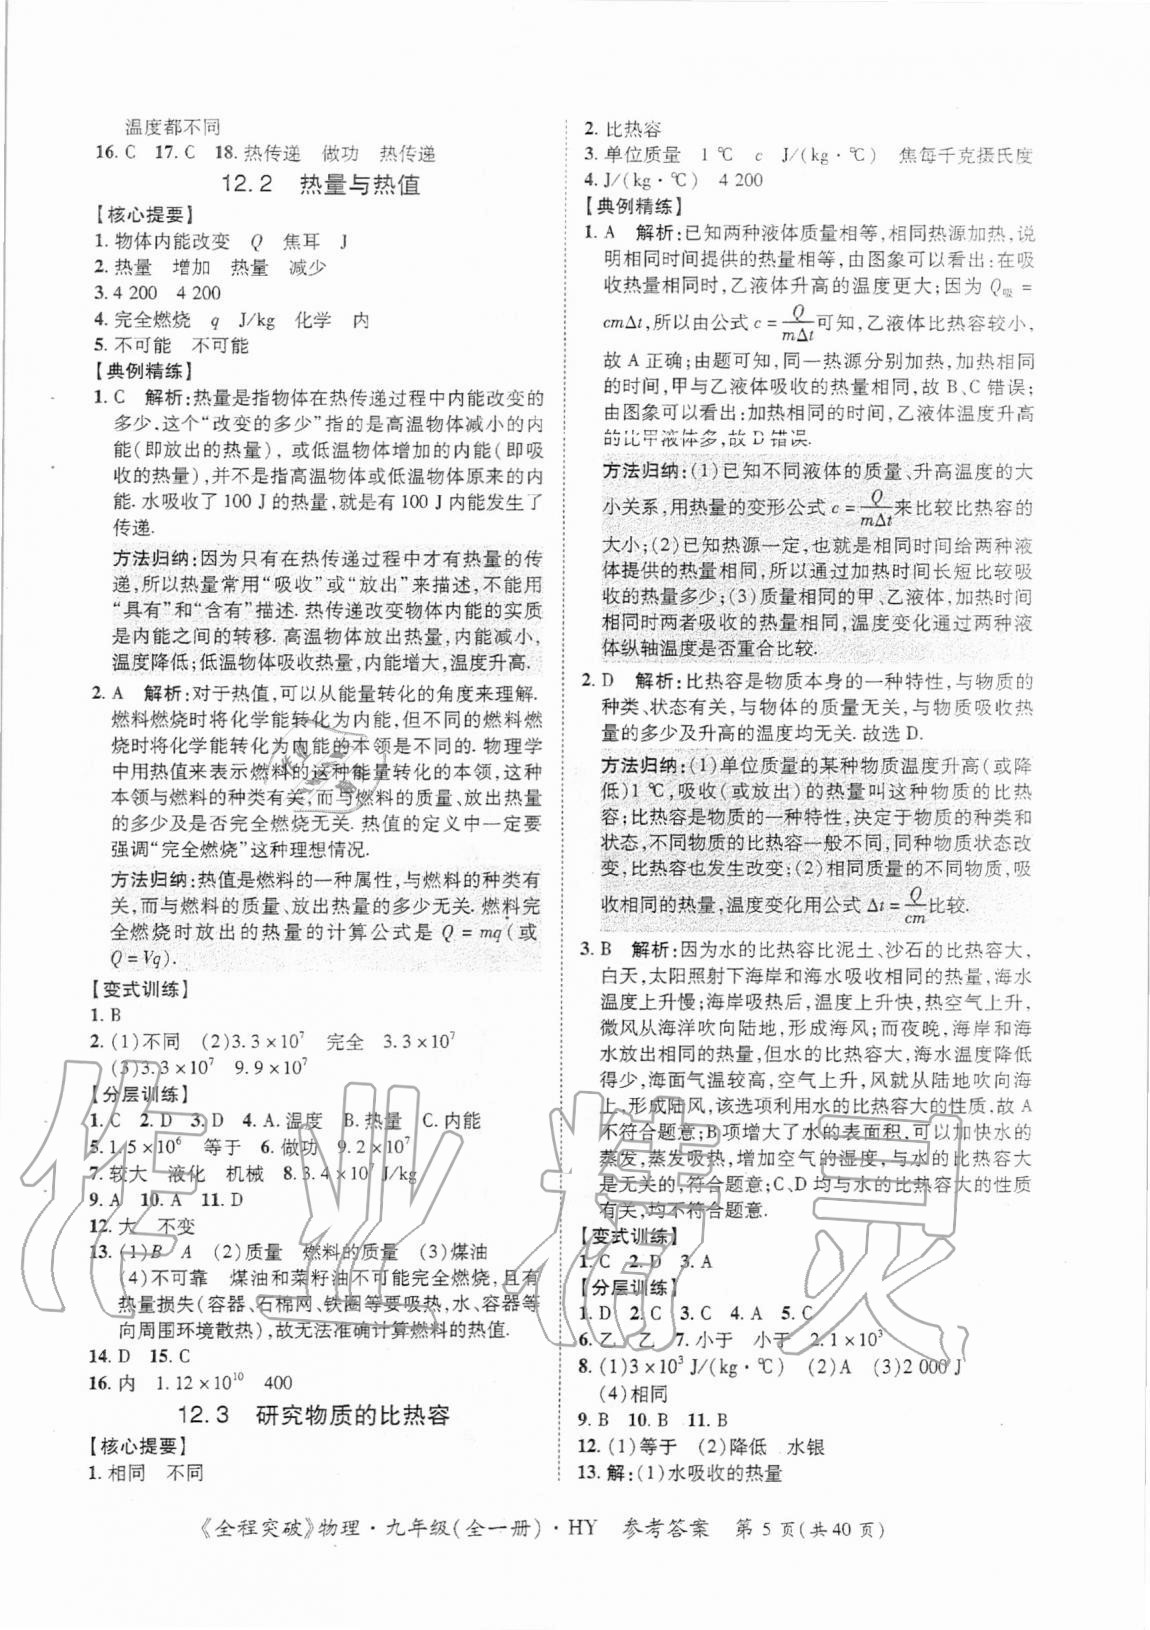 温度都不同
16. C 17. C 18. 热传递 做功 热传递
12.2 热量与热值
【核心提要】
1. 物体内能改变 Q 焦耳 J
2. 热量 增加 热量 减少
3. 4 200 4 200
4. 完全燃烧 q J/kg 化学 内
5. 不可能 不可能
【典例精练】
1. C 解析:热量是指物体在热传递过程中内能改变的
多少.这个“改变的多少”指的是高温物体减小的内
能(即放出的热量),或低温物体增加的内能(即吸
收的热量),并不是指高温物体或低温物体原来的内
能.水吸收了 100 J 的热量,就是有 100 J 内能发生了
传递.
方法归纳:因为只有在热传递过程中才有热量的传
递,所以热量常用“吸收”或“放出”来描述,不能用
“具有”和“含有”描述.热传递改变物体内能的实质
是内能之间的转移.高温物体放出热量,内能减小,
温度降低;低温物体吸收热量,内能增大,温度升高.
2. A 解析:对于热值,可以从能量转化的角度来理解.
燃料燃烧时将化学能转化为内能,但不同的燃料燃
烧时将化学能转化为内能的本领是不同的.物理学
中用热值来表示燃料的这种能量转化的本领,这种
本领与燃料的种类有关,而与燃料的质量、放出热量
的多少及是否完全燃烧无关.热值的定义中一定要
强调“完全燃烧”这种理想情况.
方法归纳:热值是燃料的一种属性,与燃料的种类有
关,而与燃料的质量、放出热量的多少无关.燃料完
全燃烧时放出的热量的计算公式是 Q = mq(或
Q = Vq).
【变式训练】
1. B
2. (1)不同 (2)3.3×10⁷ 完全 3.3×10⁷
(3)3.3×10⁷ 9.9×10⁷
【分层训练】
1. C 2. D 3. D 4. A. 温度 B. 热量 C. 内能
5. 1.5×10⁶ 等于 6. 做功 9.2×10⁷
7. 较大 液化 机械 8. 3.4×10⁷ J/kg
9. A 10. A 11. D
12. 大 不变
13. (1)B A (2)质量 燃料的质量 (3)煤油
(4)不可靠 煤油和菜籽油不可能完全燃烧,且有
热量损失(容器、石棉网、铁圈等要吸热,水、容器等
向周围环境散热),故无法准确计算燃料的热值.
14. D 15. C
16. 内 1.12×10¹⁰ 400
12.3 研究物质的比热容
【核心提要】
1. 相同 不同
2. 比热容
3. 单位质量 1 ℃ c J/(kg·℃) 焦每千克摄氏度
4. J/(kg·℃) 4 200
【典例精练】
1. A 解析:已知两种液体质量相等,相同热源加热,说
明相同时间提供的热量相等,由图象可以看出:在吸
收热量相同时,乙液体升高的温度更大;因为 Q吸 =
cmΔt,所以由公式 c = Q/mΔt 可知,乙液体比热容较小,
故 A 正确;由题可知,同一热源分别加热,加热相同
的时间,甲与乙液体吸收的热量相同,故 B、C 错误;
由图象可以看出:加热相同的时间,乙液体温度升高
的比甲液体多,故 D 错误.
方法归纳:(1)已知不同液体的质量、升高温度的大
小关系,用热量的变形公式 c = Q/mΔt 来比较比热容的
大小;(2)已知热源一定,也就是相同时间给两种液
体提供的热量相同,所以通过加热时间长短比较吸
收的热量多少;(3)质量相同的甲、乙液体,加热时间
相同时两者吸收的热量相同,温度变化通过两种液
体纵轴温度是否重合比较.
2. D 解析:比热容是物质本身的一种特性,与物质的
种类、状态有关,与物体的质量无关,与物质吸收热
量的多少及升高的温度均无关.故选 D.
方法归纳:(1)单位质量的某种物质温度升高(或降
低)1 ℃,吸收(或放出)的热量叫这种物质的比热
容;比热容是物质的一种特性,决定于物质的种类和
状态,不同物质的比热容一般不同,同种物质状态改
变,比热容也发生改变;(2)相同质量的不同物质,吸
收相同的热量,温度变化用公式 Δt = Q/cm 比较.
3. B 解析:因为水的比热容比泥土、沙石的比热容大,
白天,太阳照射下海岸和海水吸收相同的热量,海水
温度上升慢;海岸吸热后,温度上升快,热空气上升,
微风从海洋吹向陆地,形成海风;而夜晚,海岸和海
水放出相同的热量,但水的比热容大,海水温度降低
得少,海面气温较高,空气上升,风就从陆地吹向海
上,形成陆风,该选项利用水的比热容大的性质.故 A
不符合题意;B 项增大了水的表面积,可以加快水的
蒸发,蒸发吸热,增加空气的湿度,与水的比热容大
是无关的,符合题意;C、D 均与水的比热容大的性质
有关,均不符合题意.
【变式训练】
1. C 2. D 3. A
【分层训练】
1. D 2. C 3. C 4. A 5. C
6. 乙 乙 7. 小于 小于 2.1×10³
8. (1)3×10³ J/(kg·℃) (2)A (3)2 000 J
(4)相同
9. B 10. B 11. B
12. (1)等于 (2)降低 水银
13. 解:(1)水吸收的热量
《全程突破》物理·九年级(全一册)·HY 参考答案 第 5 页(共 40 页)
作业精灵